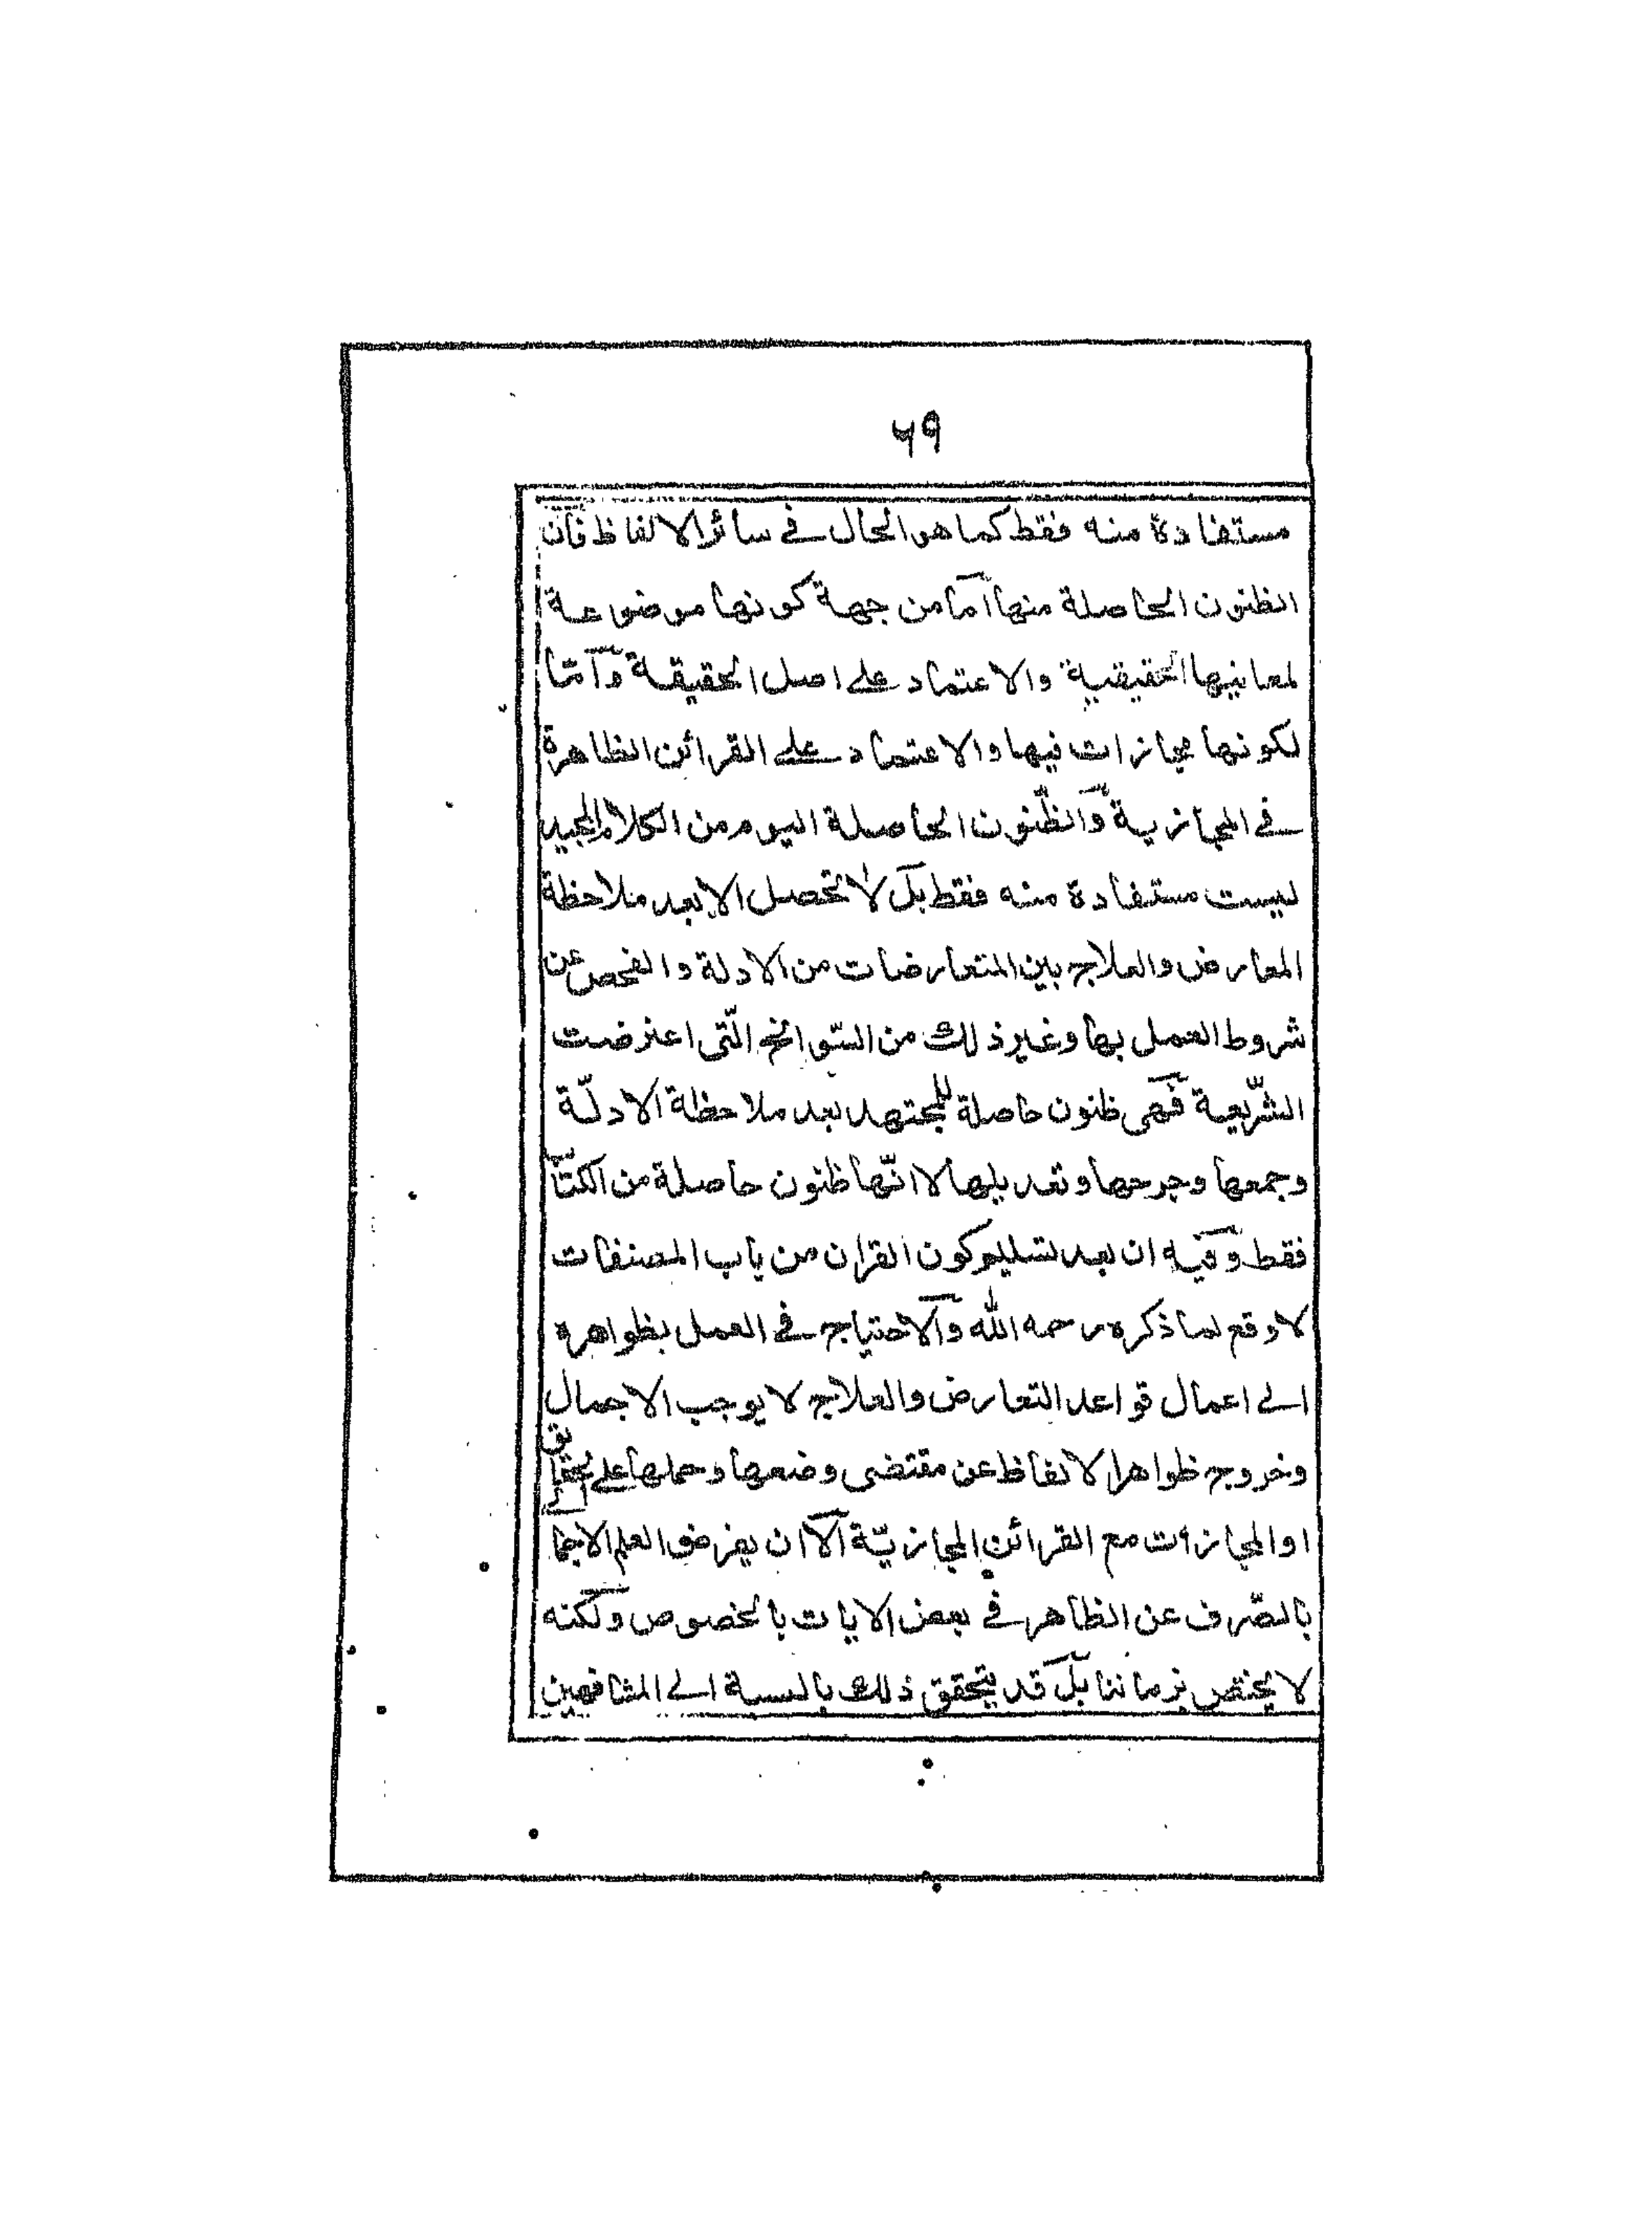 ۶۹
مستفادة منه فقط كما هو الحال في سائر الالفاظ فان
الظنون الحاصلة منها اما من جهة كونها موضوعة
لمعانيها الحقيقية والاعتماد على اصل الحقيقة واما
لكونها مجازات فيها والاعتماد على القرائن الظاهرة
في المجازية والظّنون الحاصلة اليوم من الكلام المجيد
ليست مستفادة منه فقط بل لا تحصل الا بعد ملاحظة
المعارض والعلاج بين المتعارضات من الادلة والفحص عن
شروط العمل بها وغير ذلك من السّوانح الّتى اعترضت
الشّريعية فهى ظنون حاصلة للمجتهد بعد ملاحظة الادلّة
وجمعها وجرحها وتعديلها لا انّها ظنون حاصلة من الكتاب
فقط وفيه ان بعد تسليم كون القران من باب المصنفات
لا وقع لما ذكره رحمه الله والاحتياج في العمل بظواهره
الى اعمال قواعد التعارض والعلاج لا يوجب الاجمال
وخروج ظواهر الالفاظ عن مقتضى وضعها وحملها على الحقايق
او المجازات مع القرائن المجازيّة الا ان يفرض العلم الاجمالى
بالصّرف عن الظاهر في بعض الايات بالخصوص ولكنه
لا يختص بزماننا بل قد يتحقق ذلك بالنسبة الى المشافهين